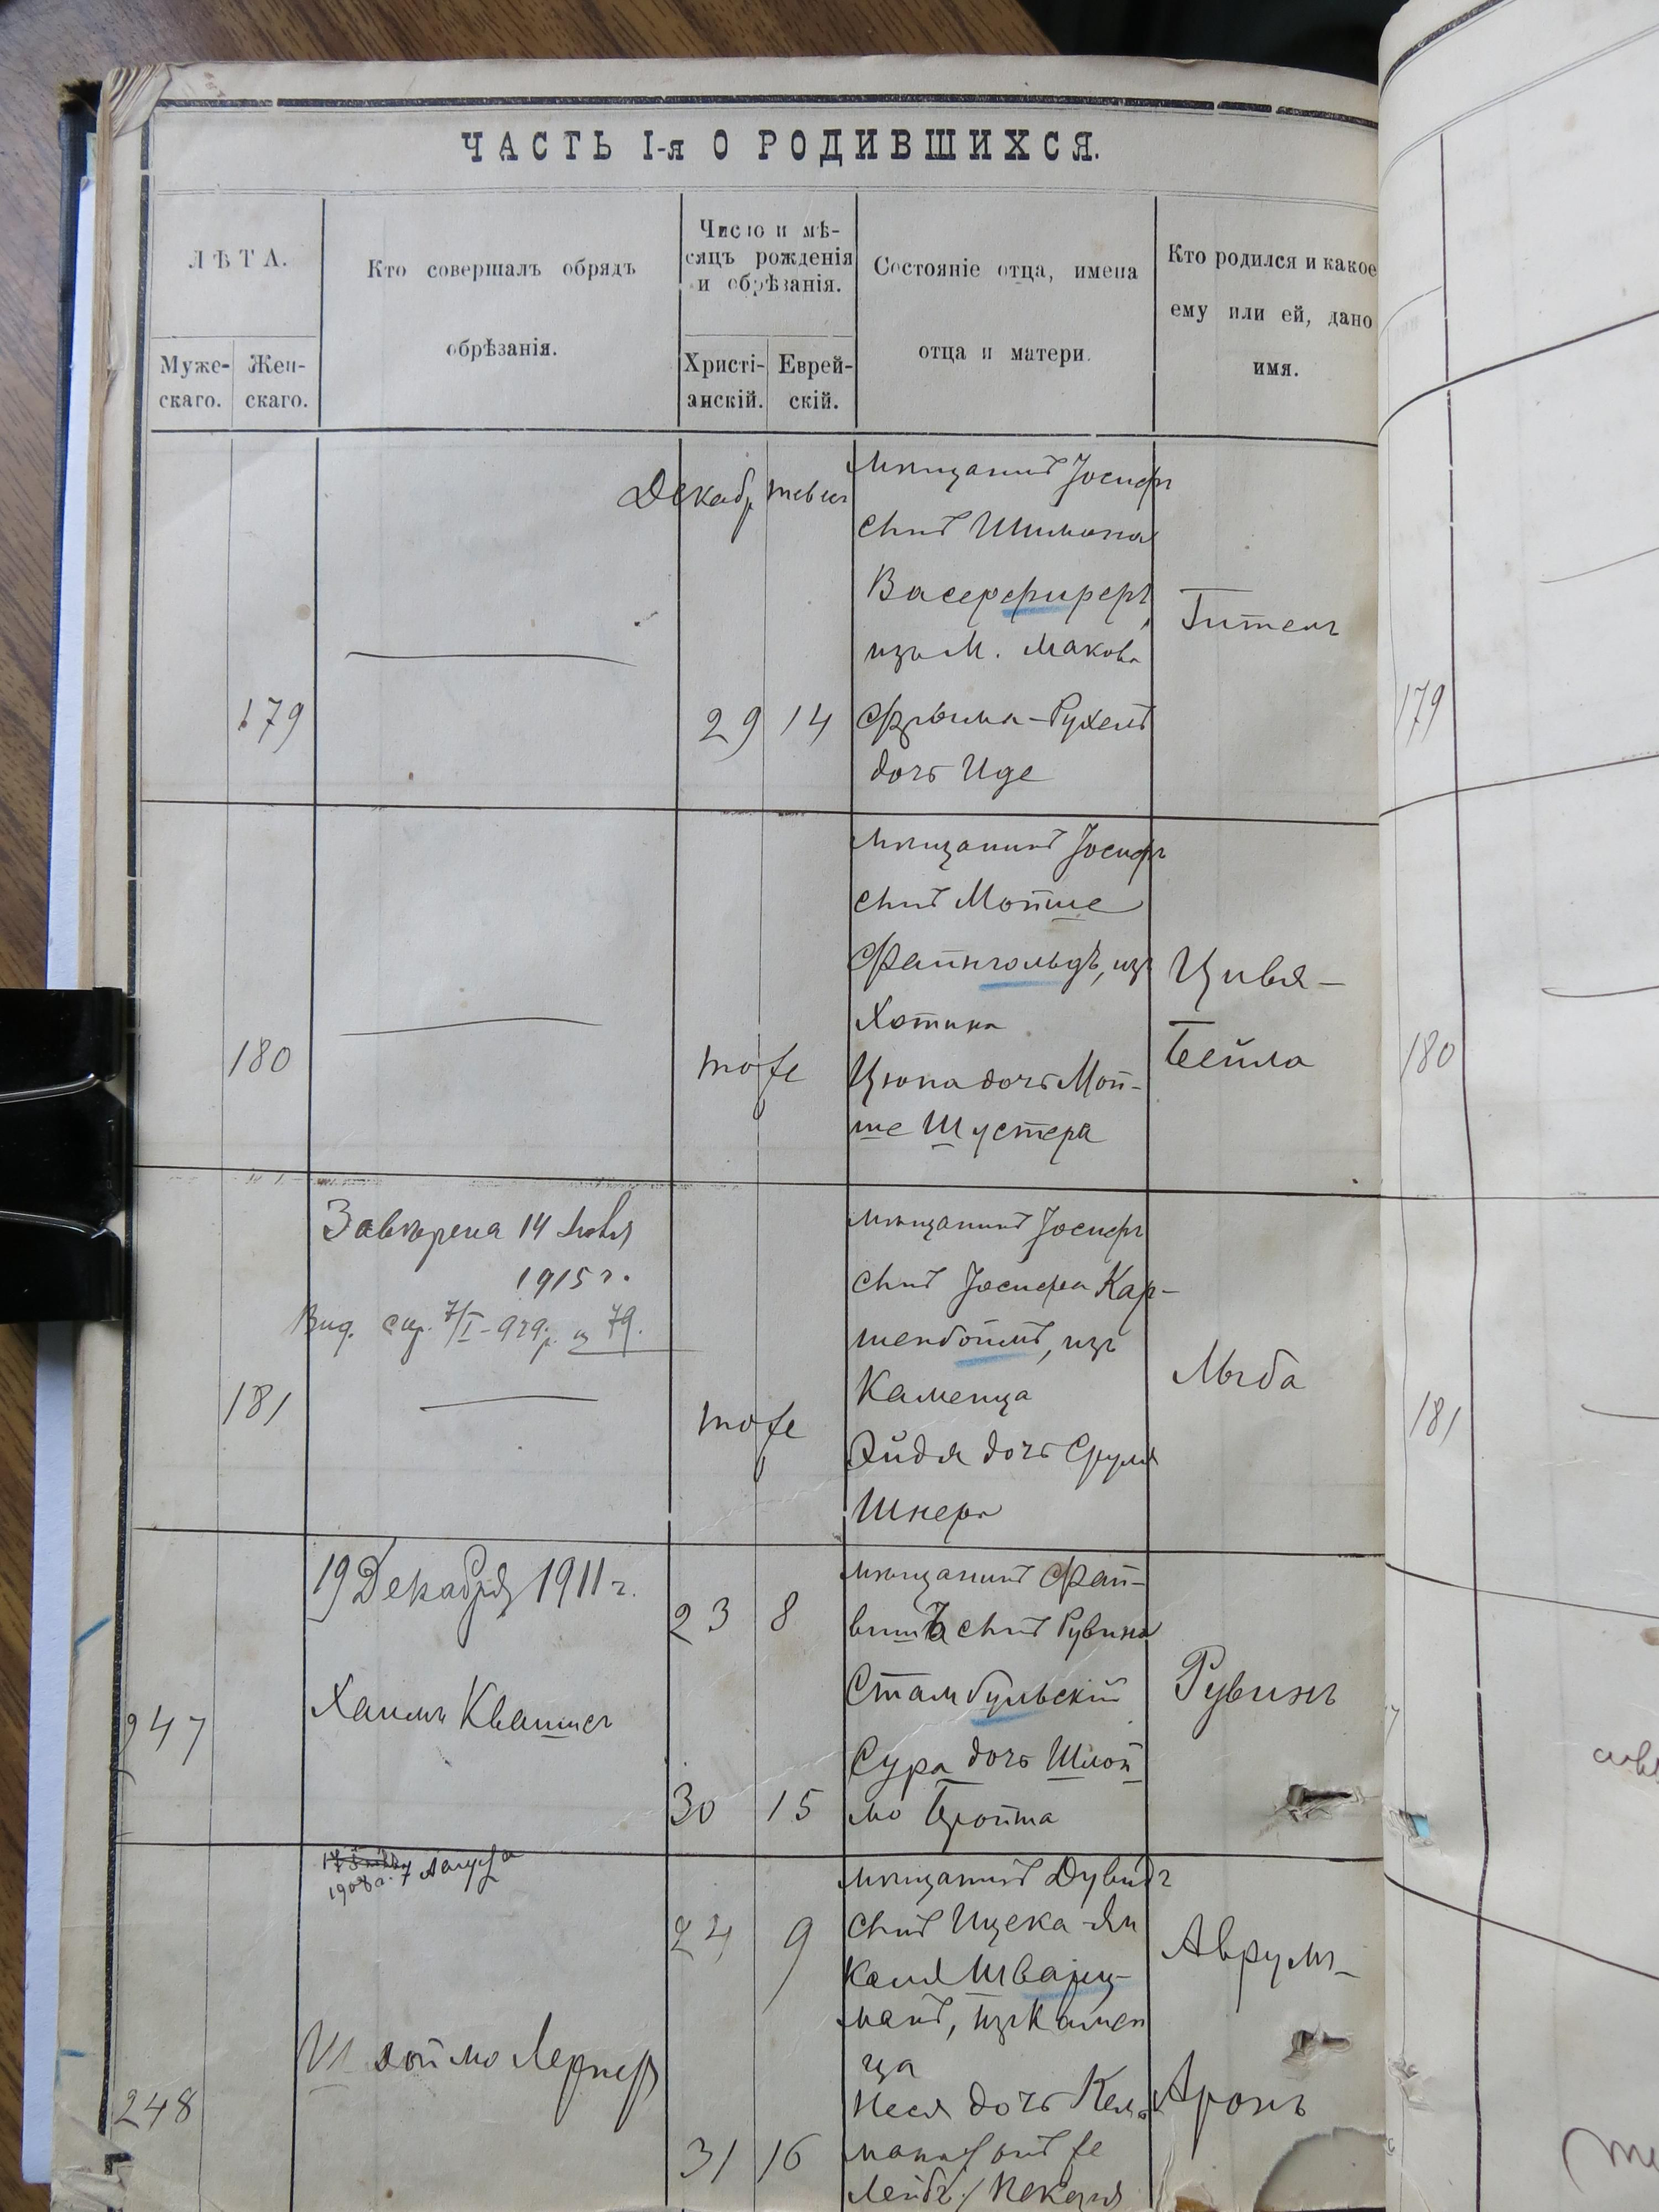 ЧАСТЬ I-я О РОДИВШИХСЯ.
ЛѢТА.
Муже-
скаго.
Жен-
скаго.
Кто совершалъ обрядъ
обрѣзанія.
Число и мѣ-
сяцъ рожденія
и обрѣзанія.
Христі-
анскій.
Еврей-
скій.
Состояніе отца, имена
отца и матери.
Кто родился и какое
ему или ей, дано
имя.
179
Декабр
29
14
мѣщанинъ Іосифъ
сынъ Шимона
Васерфиреръ,
изъ м. Макова
Фрыма-Рухель
дочь Иде
Гитель
179
180
тоже
мѣщанинъ Іосифъ
сынъ Мойше
Файнгольдъ, изъ
Хотина
Цюпа дочь Мой-
ше Шустера
Цивья-
Бейла
180
181
14
1915 г.
79.
тоже
мѣщанинъ Іосифъ
сынъ Іосифа Кар-
шенбоймъ, изъ
Каменца
Эйдя дочь Сруля
Шнера
Лыба
181
247
19 Декабря 1911 г.
Хаимъ
23
8
30
15
мѣщанинъ Фай-
сынъ Рувина
Стамбульскій
Сура дочь Шлой-
мо Бройта
Рувинъ
248
1908 г. 7 Августа
Шлоймо Лернеръ
24
9
31
16
мѣщанинъ Дувидъ
сынъ Ицека-Ян
келя Шварц-
манъ, изъ Камен
ца
Неся дочь Кель
мана
Лейбъ
Аврумъ-
Аронъ